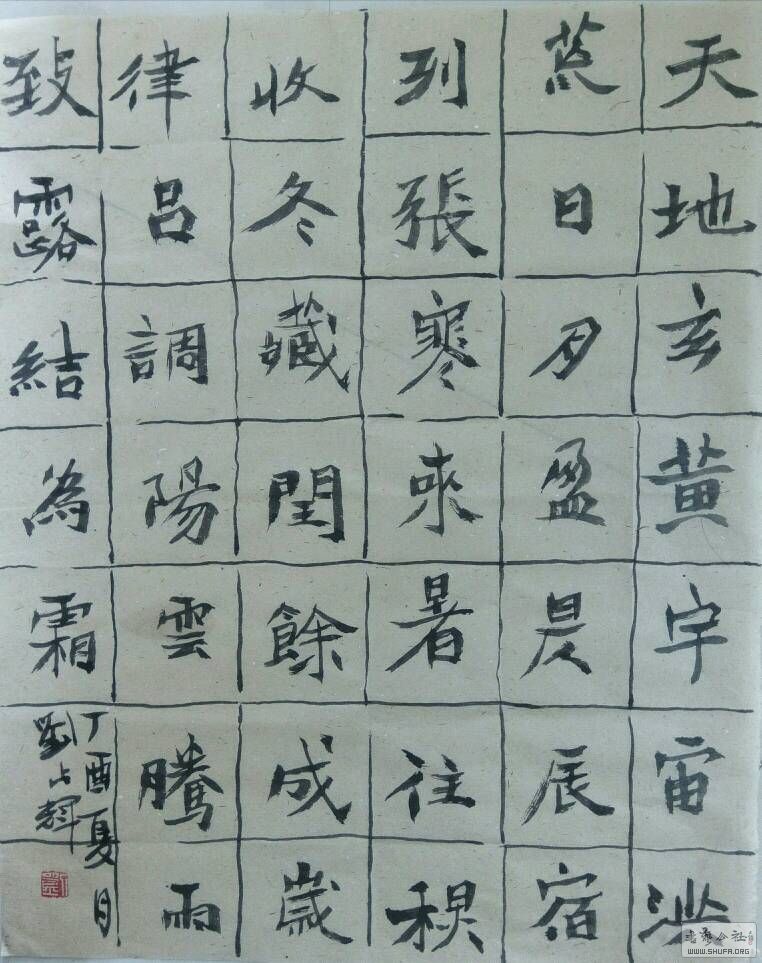 天地玄黄宇宙洪
荒日月盈昃辰宿
列張寒來暑往秋
收冬藏閏餘成歲
律呂調陽雲騰雨
致露結為霜
丁酉夏月
劉占輝
书法公社
WWW.SHUFA.ORG